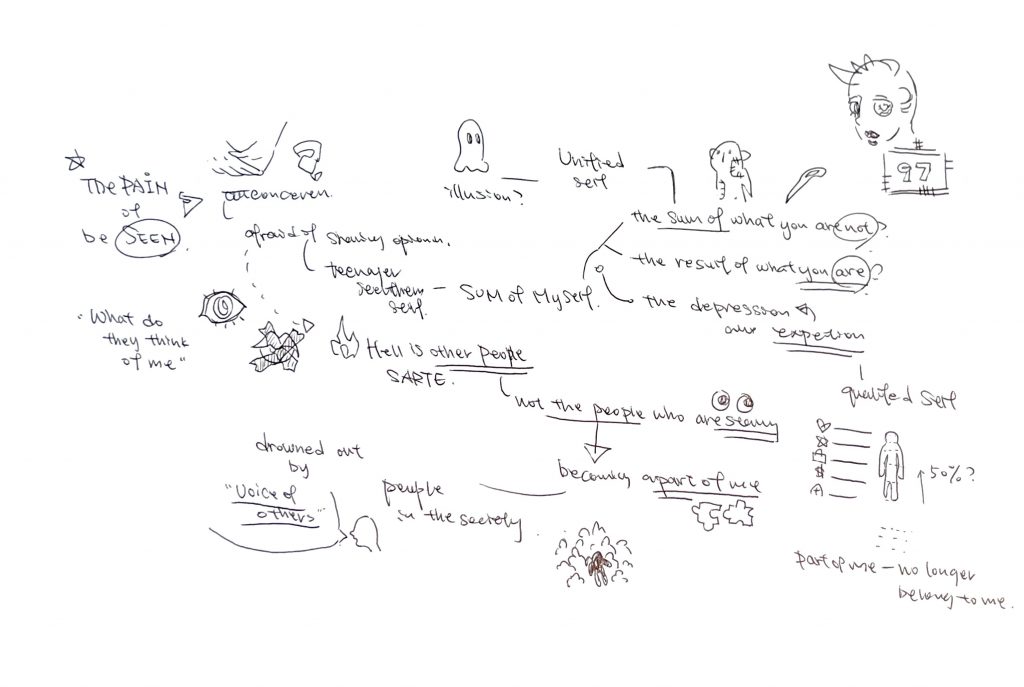 The PAIN
of
be SEEN.
"What do
they think
of me"
unconceven.
afraid of showing opionion.
teenager
see them
self.
SUM of Myself.
illusion?
Unified
self
the sum of what you are not?
the result of what you are?
the depression
expetion
97
Hell is other people
SARTE.
not the people who are seeing
becoming a part of me
people
in the secrety.
drowned out
by
"Voice of
others"
self
50%?
part of me - no longer
belong to me.